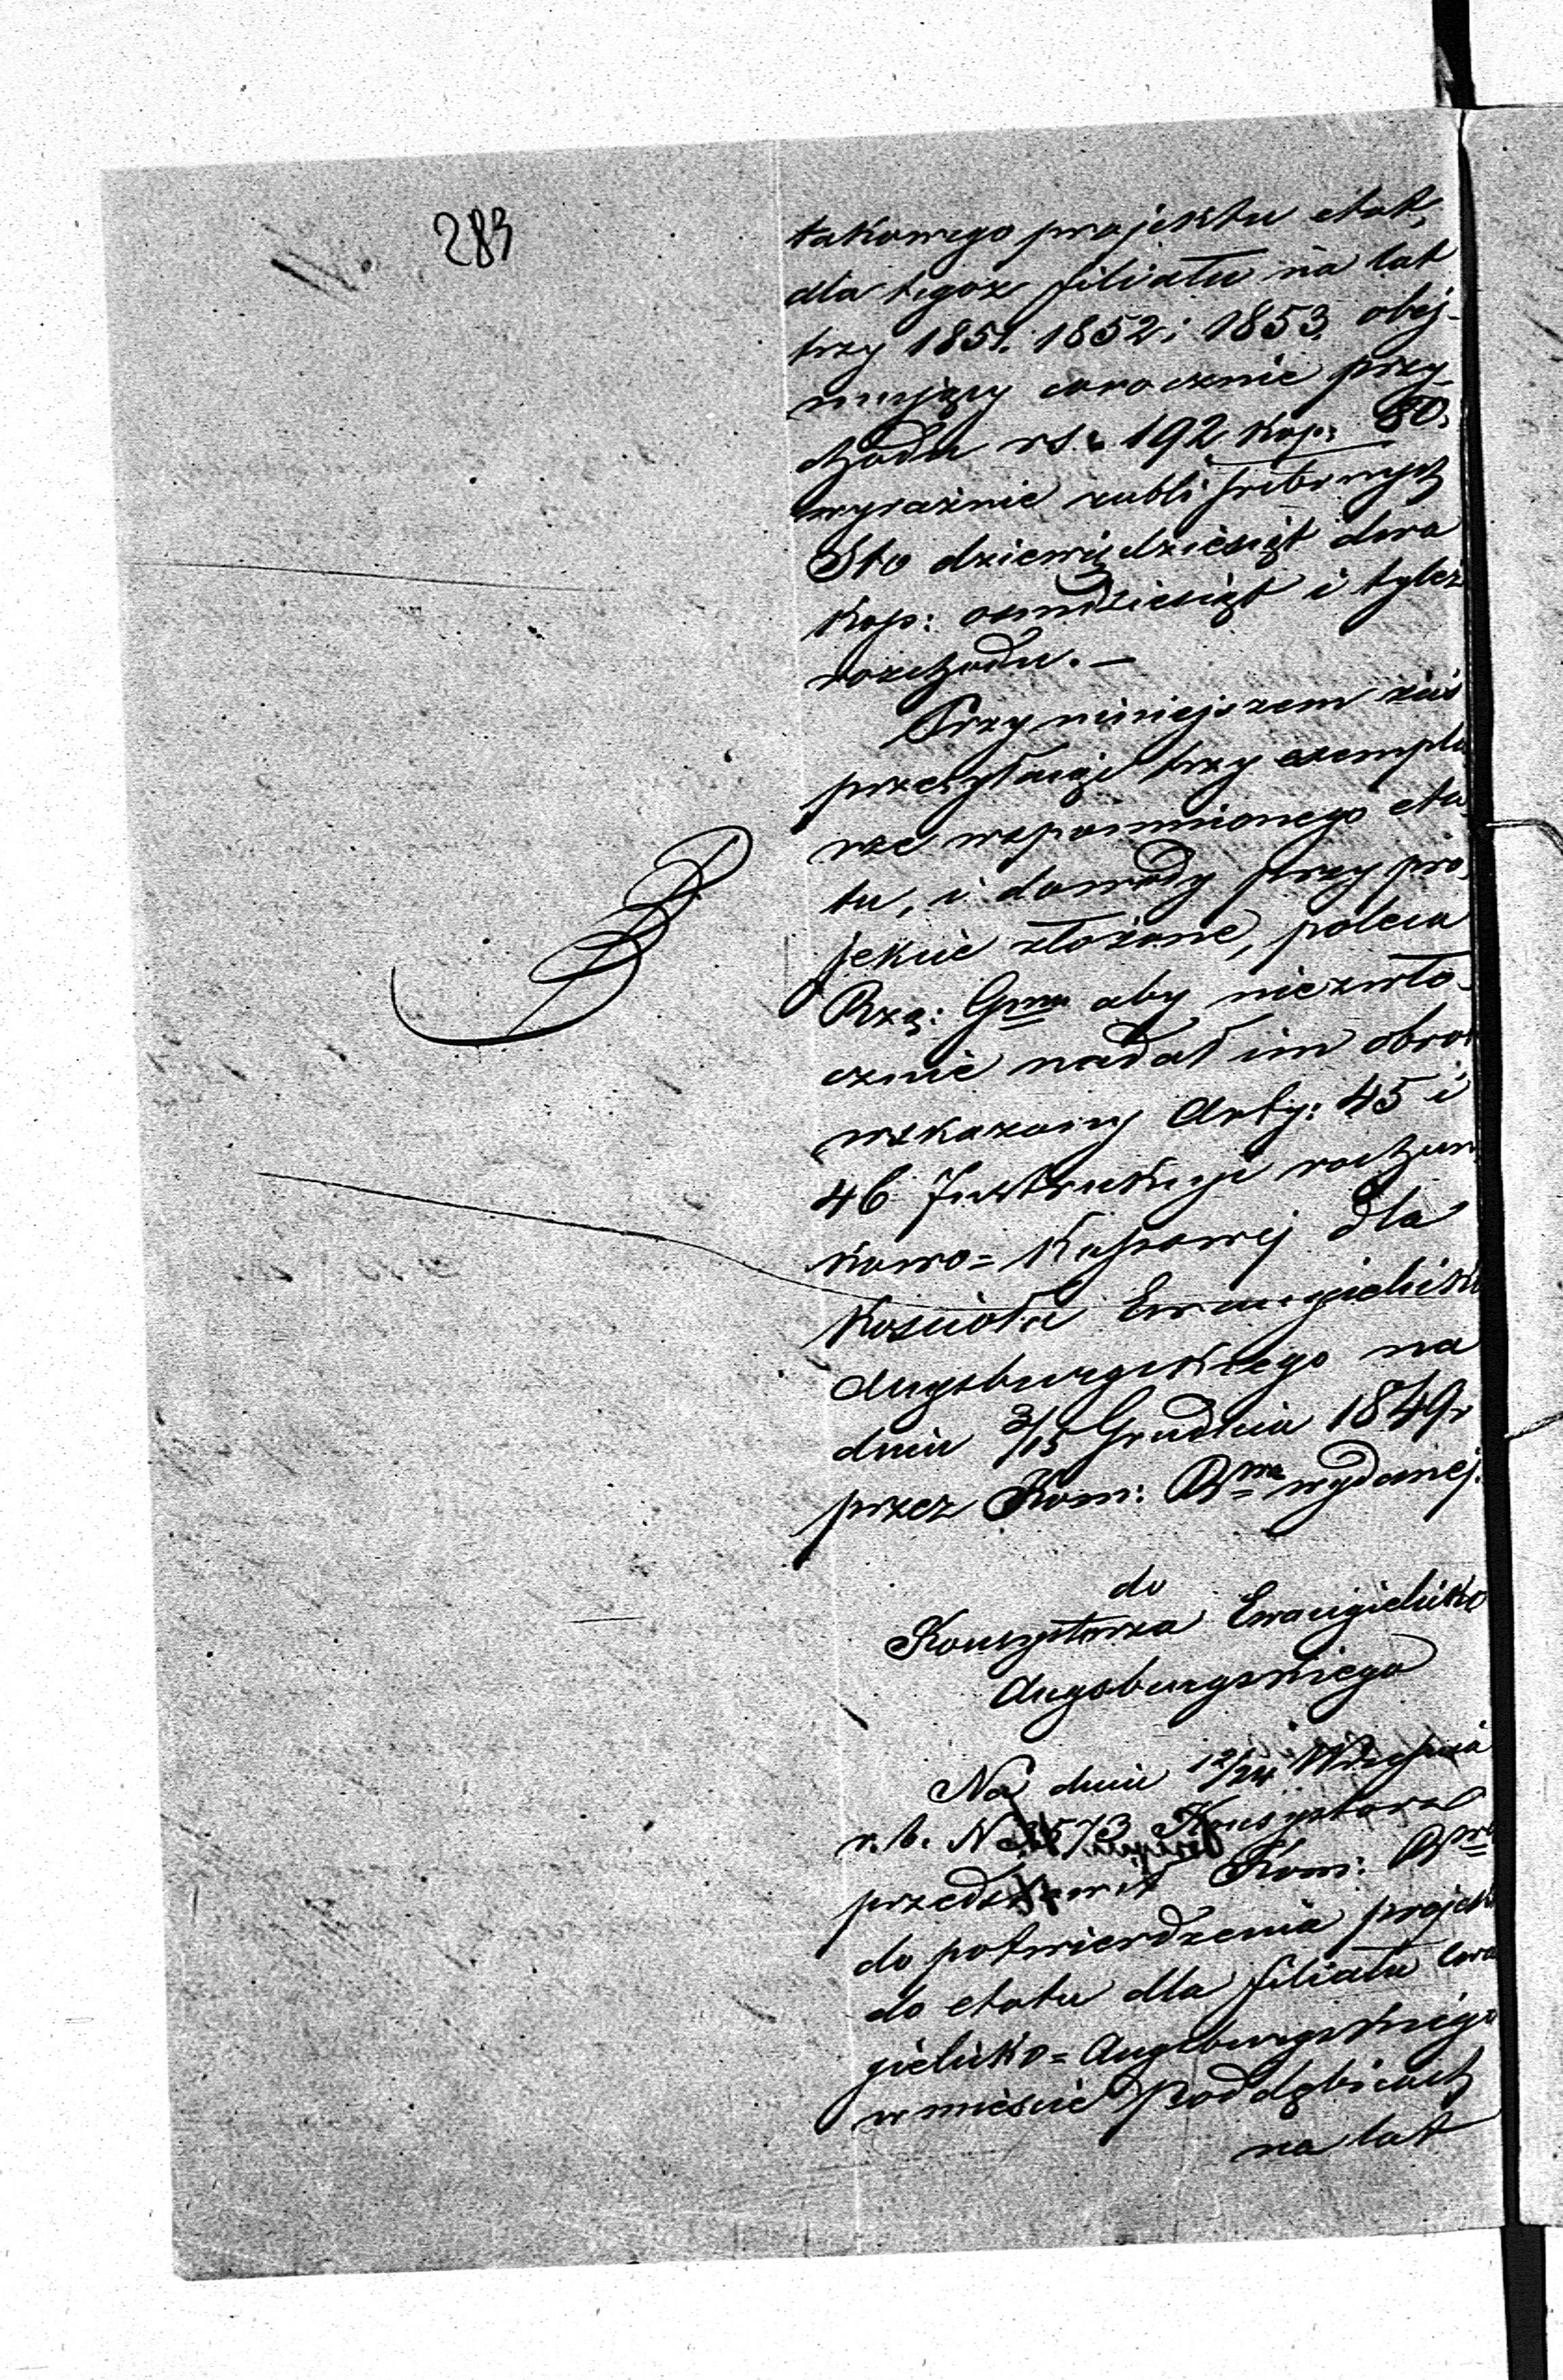 283
takowego projektu etat,
dla tegoż filiału na lat
trzy 1851. 1852 i 1853. obej-
mujący corocznie przy-
chodu rs. 192 kop: 80.
wyraźnie rubli srebrnych
Sto dziewięćdziesiąt dwa
kop: osmdziesiąt i tyleż
rozchodu. —
Przy niniejszem zaś
przesyłając trzy exempla
rze wspomnionego eta
tu, i dowody przy pro
jekcie złożone, poleca
Rzą: Gmu aby niezwło-
cznie nadał im obrot
wskazany Arty: 45 i
46 Instrukcyi rachun
kowo=Kassowej dla
Kościoła Ewangielicko
Augsburgskiego na
dniu 3/15 Grudnia 1849 r
przez Kom: Rwą wydanej.
do
Konsystorza Ewangielicko
Augsburgskiego
Na dniu 12/24 Września
r. b. N 3573 Konsystorz
przedstawił Kom: Rwej
do potwierdzenia projekt
do etatu dla filiału Ewa
gielicko=Augsburgskiego
w mieście Poddębicach
na lat